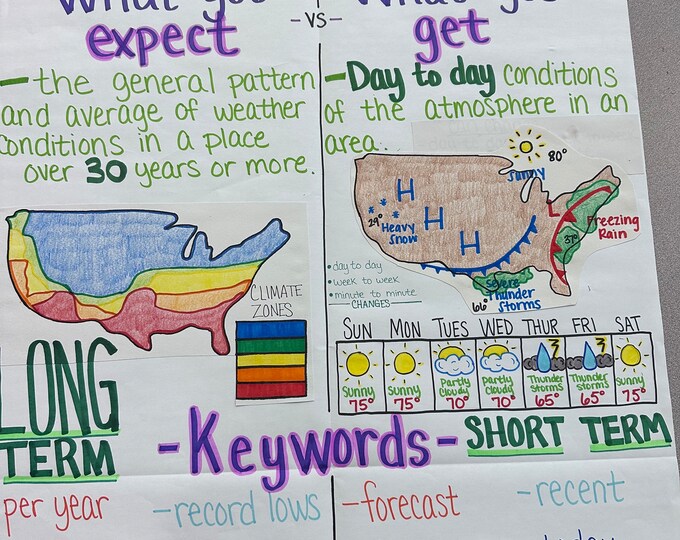 What you
expect
- VS -
What you
get
- the general pattern
and average of weather
conditions in a place
over 30 years or more.
CLIMATE
ZONES
LONG
TERM
- Day to day conditions
of the atmosphere in an
area.
80°
Sunny
H
H
H
29°
Heavy
Snow
L
Freezing
Rain
37°
Severe
Thunder
Storms
66°
• day to day
• week to week
• minute to minute
CHANGES
SUN MON TUES WED THUR FRI SAT
Sunny Sunny Partly Cloudy Partly Cloudy Thunder Storms Thunder Storms Sunny
75° 75° 70° 70° 65° 65° 75°
- Keywords -
SHORT TERM
per year
- record lows
- forecast
- recent
today